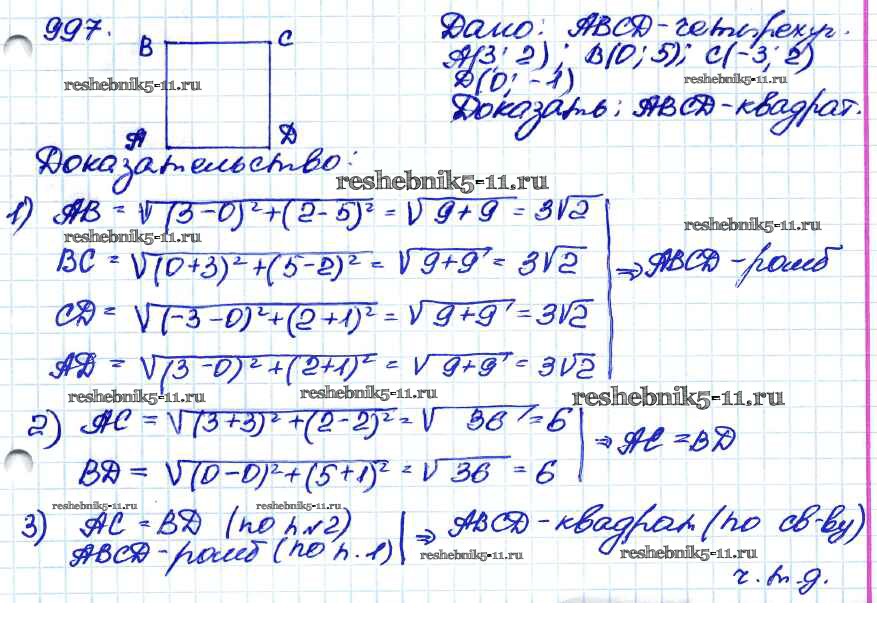 997.
B C
A D
Дано: ABCD - четырехуг.
A(3; 2); B(0; 5); C(-3; 2)
D(0; -1)
Доказать: ABCD - квадрат.
reshebnik5-11.ru
reshebnik5-11.ru
Доказательство:
reshebnik5-11.ru
1) AB = √(3-0)²+(2-5)² = √9+9 = 3√2
reshebnik5-11.ru
reshebnik5-11.ru
BC = √(0+3)²+(5-2)² = √9+9 = 3√2
⇒ ABCD - ромб
CD = √(-3-0)²+(2+1)² = √9+9 = 3√2
AD = √(3-0)²+(2+1)² = √9+9 = 3√2
reshebnik5-11.ru
reshebnik5-11.ru
reshebnik5-11.ru
2) AC = √(3+3)²+(2-2)² = √36 = 6
⇒ AC = BD
BD = √(0-0)²+(5+1)² = √36 = 6
reshebnik5-11.ru
reshebnik5-11.ru
3) AC = BD (по п№2)
ABCD - ромб (по п.1)
⇒ ABCD - квадрат (по св-ву)
reshebnik5-11.ru
reshebnik5-11.ru
ч.т.д.